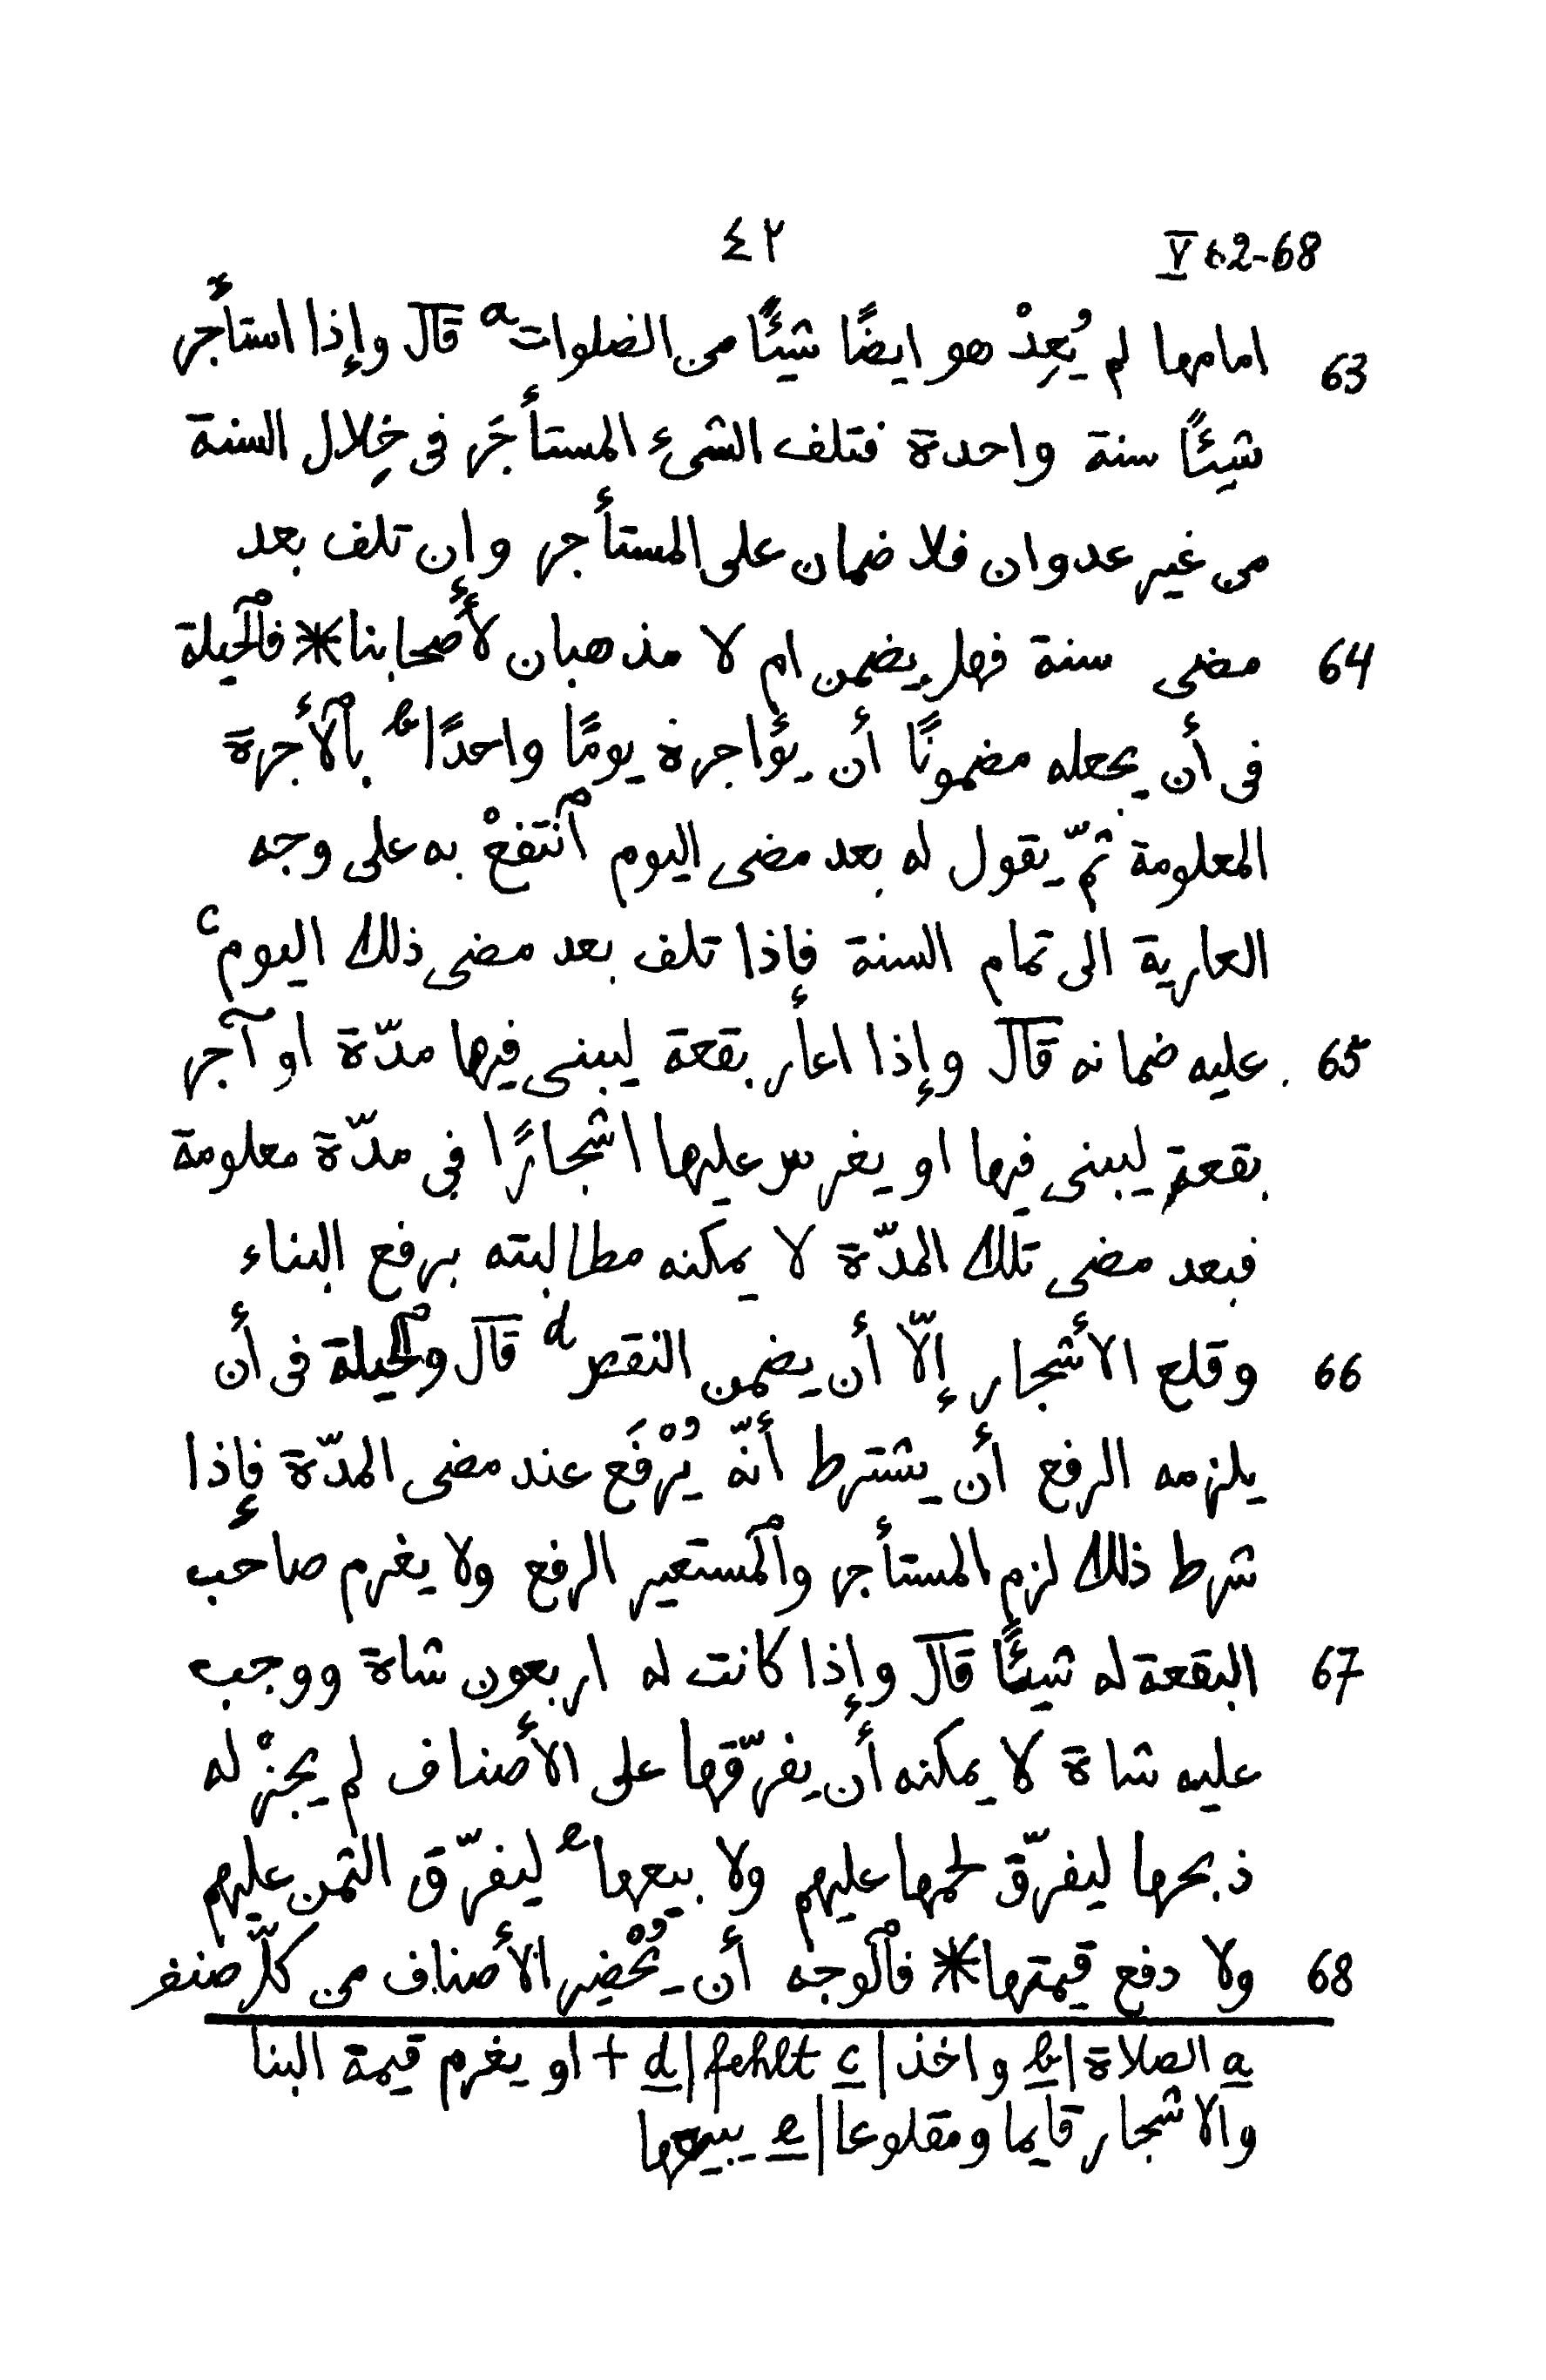 ٤٢ V 62-68
امامها لم يُعِدْ هو ايضًا شيئًا من الصلوات a قال وإذا استأجر 63
شيئًا سنة واحدة فتلف الشىء المستأجَر فى خِلال السنة
من غير عدوان فلا ضمان على المستأجر وإن تلف بعد
مضى سنة فهل يضمن ام لا مذهبان لأصحابنا * فٱلحيلة 64
فى أن يجعله مضمونًا أن يؤاجره يومًا واحدًا b بٱلأجرة
المعلومة ثمّ يقول له بعد مضى اليوم ٱنتفعْ به على وجه
العارية الى تمام السنة فإذا تلف بعد مضى ذلك اليوم c
عليه ضمانه قال وإذا اعأر بقعة ليبنى فيها مدّة او آجر 65
بقعة ليبنى فيها او يغرس عليها اشجارًا فى مدّة معلومة
فبعد مضى تلك المدّة لا يمكنه مطالبته برفع البناء
وقلع الأشجار إلّا أن يضمن النقص d قال وٱلحيلة فى أن 66
يلزمه الرفع أن يشترط أنّه يُرْفَع عند مضى المدّة فإذا
شرط ذلك لزم المستأجر وٱلمستعير الرفع ولا يغرم صاحب
البقعة له شيئًا قال وإذا كانت له اربعون شاة ووجب 67
عليه شاة لا يمكنه أن يفرّقها على الأصناف لم يجزْ له
ذبحها ليفرّق لحمها عليهم ولا بيعها e ليفرّق الثمن عليهم
ولا دفع قيمتها * فٱلوجه أن يُحْضِر الأصناف من كلّ صنف 68
a الصلاة | b واخذ | c fehlt | d + او يغرم قيمة البنا
والاشجار قايما ومقلوعا | e يبيعها